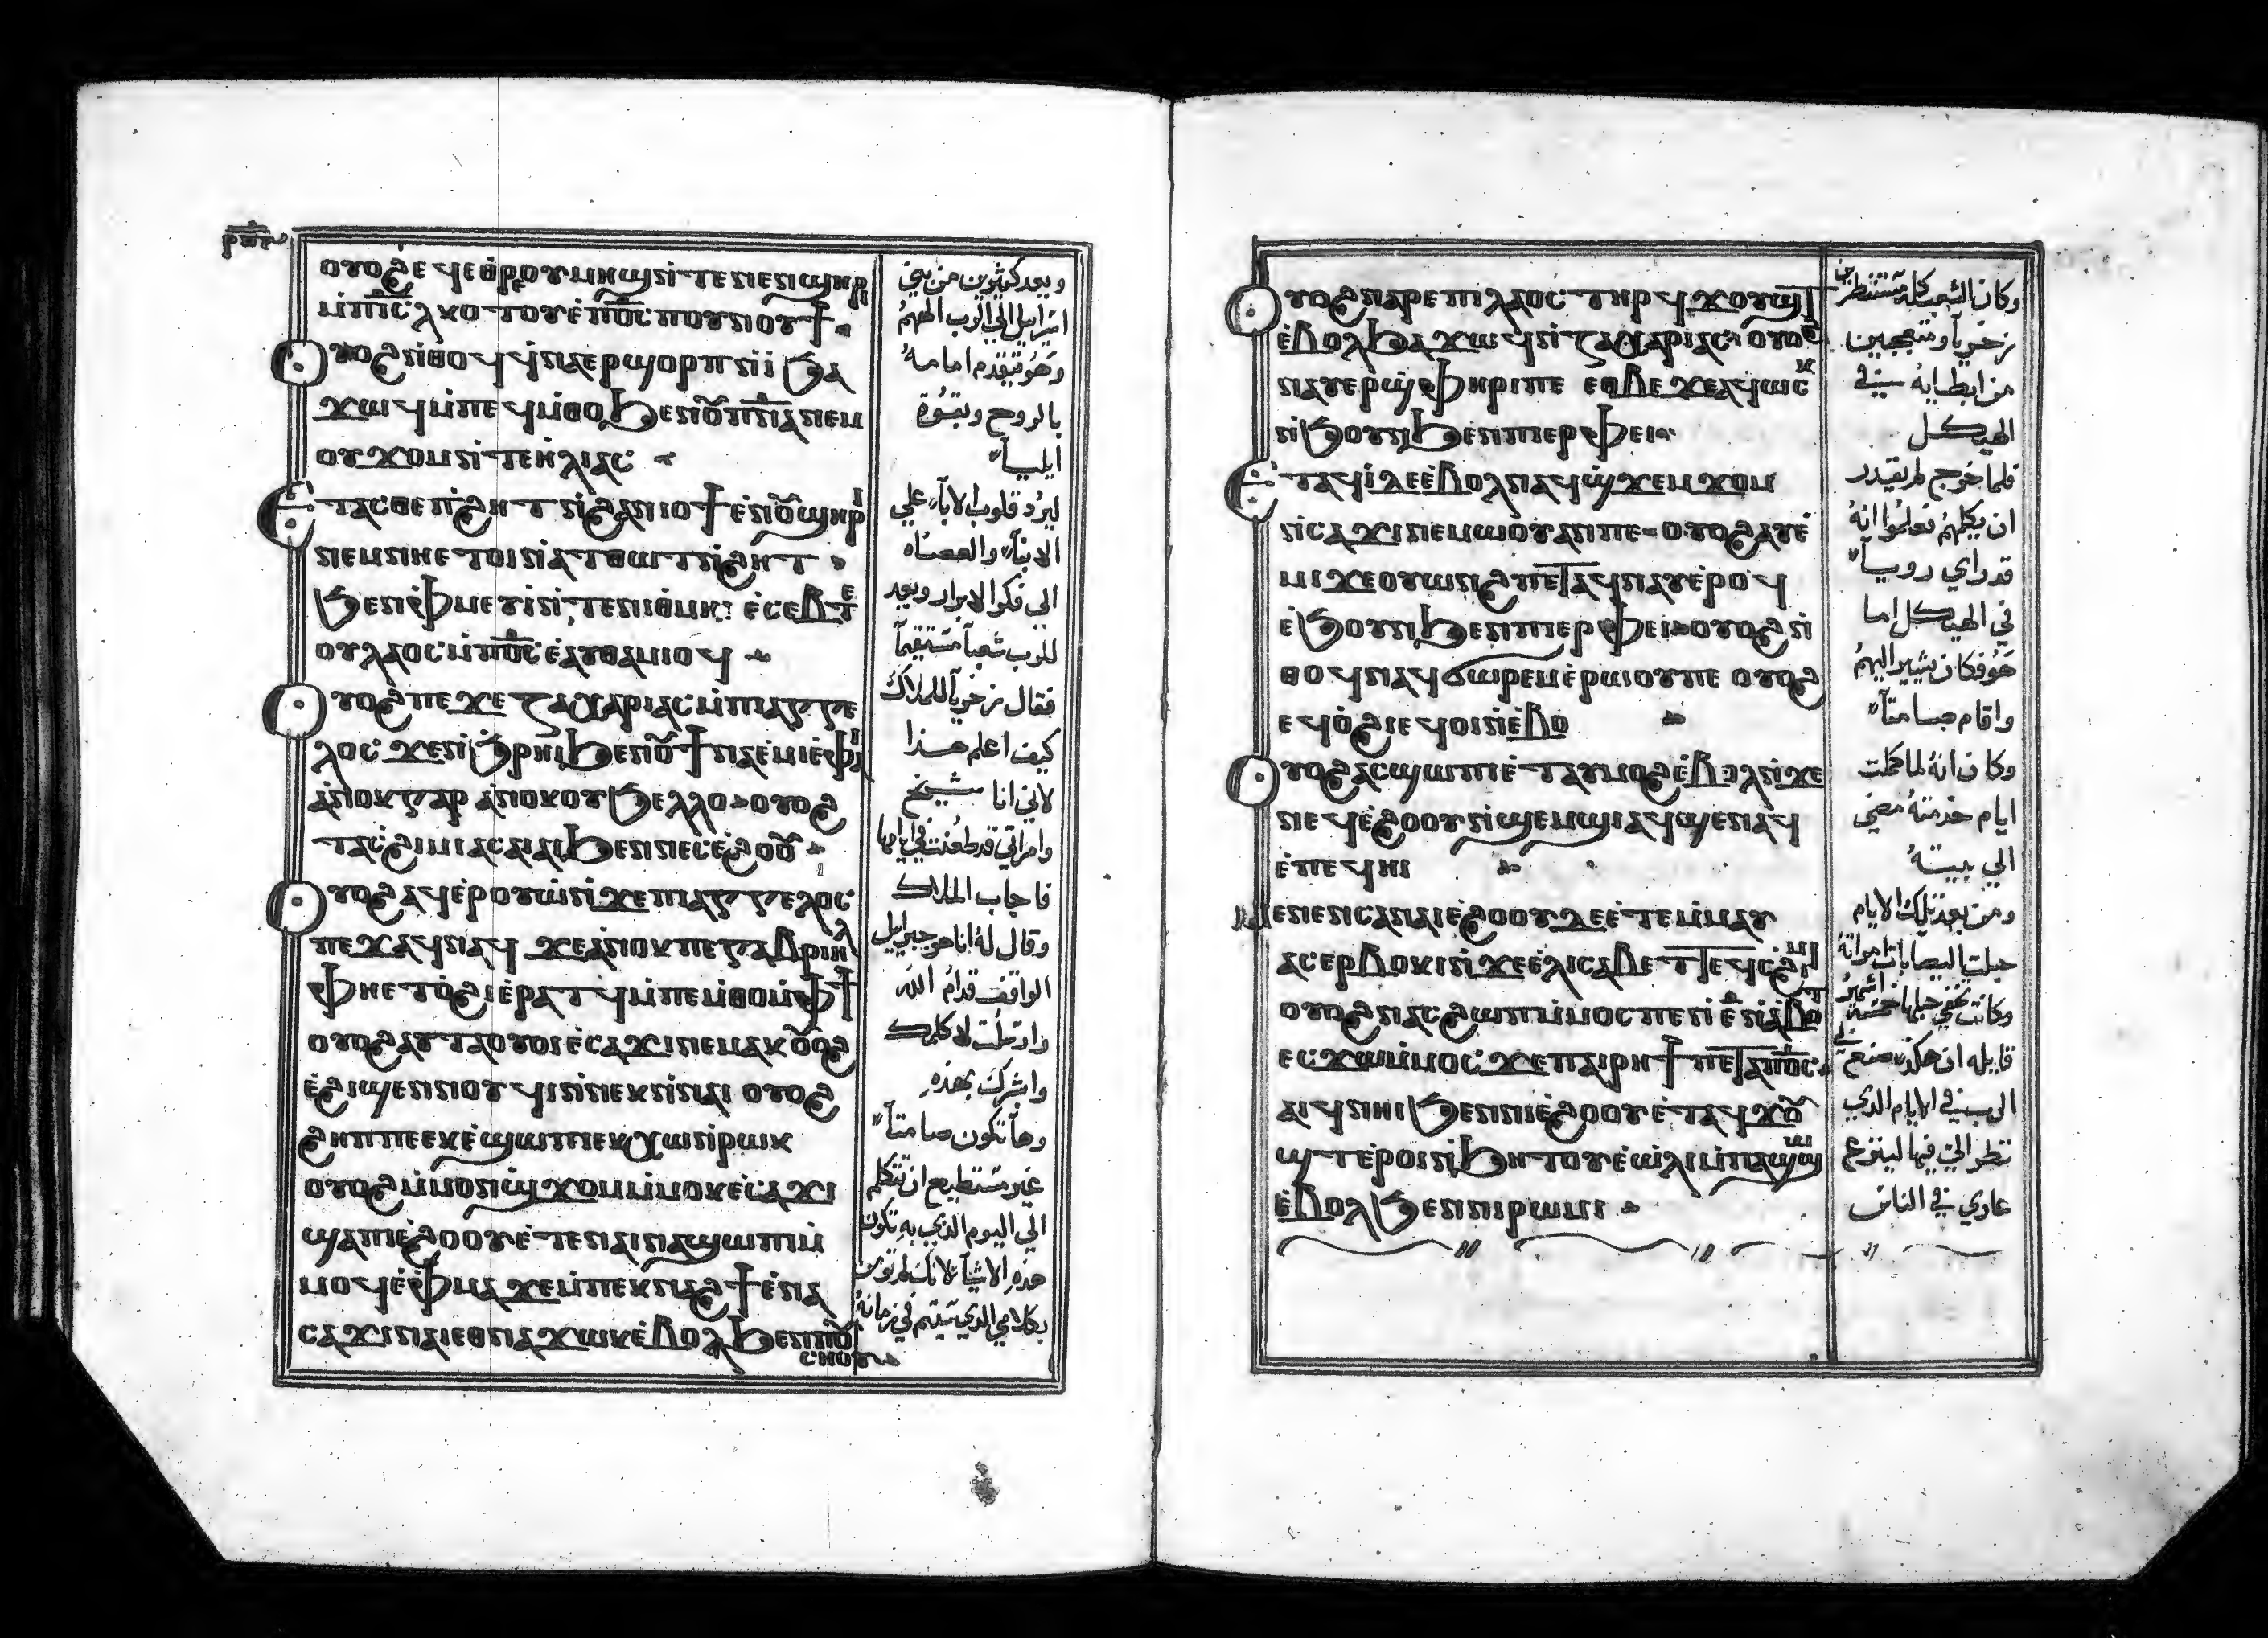 ⲟⲩⲟϩ ⲉϥⲉⲑⲣⲉⲟⲩⲙⲏϣ ⲛ̀ⲧⲉ ⲛⲉⲛϣⲏⲣⲓ
ⲙ̀ⲡⲓⲥ̅ⲗ ⲕⲟⲧⲟⲩ ⲉ̀ⲡϭ̅ⲥ̅ ⲡⲟⲩⲛⲟⲩϯ
ⲟⲩⲟϩ ⲛ̀ⲑⲟϥ ϥ̀ⲛⲁⲉⲣϣⲟⲣⲡ ⲛ̀ⲓ̀ ϧⲁ
ϫⲱϥ ⲙ̀ⲡⲉϥⲙ̀ⲑⲟ ϧⲉⲛ ⲟⲩⲡ̅ⲛ̅ⲁ̅ ⲛⲉⲙ
ⲟⲩϫⲟⲙ ⲛ̀ⲧⲉ ⲏ̀ⲗⲓⲁⲥ
ⲉ̀ⲧⲁⲥⲑⲉ ⲡ̀ϩⲏⲧ ⲛ̀ϩⲁⲛⲓⲟϯ ⲉ̀ⲛⲟⲩϣⲏⲣⲓ
ⲛⲉⲙ ⲛⲏⲉⲧⲟⲓ ⲛ̀ⲁⲧⲑⲱⲧ ⲛ̀ϩⲏⲧ
ϧⲉⲛ ⲫ̀ⲙⲉⲩⲓ̀ ⲛ̀ⲧⲉ ⲛⲓⲑⲙⲏⲓ ⲉ̀ⲥⲉⲃⲧⲉ
ⲟⲩⲗⲁⲟⲥ ⲙ̀ⲡϭ̅ⲥ̅ ⲉ̀ⲁⲩⲑⲁⲙⲓⲟϥ
ⲟⲩⲟϩ ⲡⲉϫⲉ ⲍⲁⲭⲁⲣⲓⲁⲥ ⲙ̀ⲡⲓⲁⲅⲅⲉ
ⲗⲟⲥ ϫⲉ ⲛ̀ϧⲣⲏⲓ ϧⲉⲛ ⲟⲩ ϯⲛⲁⲉ̀ⲙⲓ ⲉ̀ⲫⲁⲓ
ⲁ̀ⲛⲟⲕ ⲅⲁⲣ ⲁ̀ⲛⲟⲕ ⲟⲩϧⲉⲗⲗⲟ ⲟⲩⲟϩ
ⲧⲁⲥ̀ϩⲓⲙⲓ ⲁⲥⲁⲓⲁⲓ ϧⲉⲛ ⲛⲉⲥⲉ̀ϩⲟⲟⲩ
ⲟⲩⲟϩ ⲁϥⲉ̀ⲣⲟⲩⲱ̀ ⲛ̀ϫⲉ ⲡⲓⲁⲅⲅⲉⲗⲟⲥ
ⲡⲉϫⲁϥ ⲛⲁϥ ϫⲉ ⲁ̀ⲛⲟⲕ ⲡⲉ ⲅⲁⲃⲣⲓⲏⲗ
ⲫⲏⲉⲧⲟ̀ϩⲓ ⲉ̀ⲣⲁⲧϥ ⲙ̀ⲡⲉⲙ̀ⲑⲟ ⲙ̀ⲫϯ
ⲟⲩⲟϩ ⲁⲩⲧⲁⲟⲩⲟⲓ ⲉ̀ⲥⲁϫⲓ ⲛⲉⲙⲁⲕ ⲟⲩⲟϩ
ⲉ̀ϩⲓϣⲉⲛⲛⲟⲩϥⲓ ⲛ̀ⲛⲉⲕ ⲛ̀ⲛⲁⲓ ⲟⲩⲟϩ
ϩⲏⲡⲡⲉ ⲉⲕⲉ̀ϣⲱⲡⲓ ⲉⲕⲭⲱ ⲛ̀ⲣⲱⲕ
ⲟⲩⲟϩ ⲙ̀ⲙⲟⲛ ϣ̀ϫⲟⲙ ⲙ̀ⲙⲟⲕ ⲉ̀ⲥⲁϫⲓ
ϣⲁ ⲡⲓⲉ̀ϩⲟⲟⲩ ⲉ̀ⲧⲉ ⲛⲁⲓ ⲛⲁϣⲱⲡⲓ ⲙ̀
ⲙⲟϥ ⲉ̀ⲫⲙⲁ ϫⲉ ⲙ̀ⲡⲉⲕⲛⲁϩϯ ⲉ̀ⲛⲁ
ⲥⲁϫⲓ ⲛⲁⲓ ⲉⲑⲛⲁϫⲱⲕ ⲉ̀ⲃⲟⲗ ϧⲉⲛ ⲡⲟⲩ
ⲥⲏⲟⲩ
ويعد كثيرين من بني
اسراييل الي الرب الههم
وهو يتقدم امامه
بالروح وبقوة
ايلياء
ليرد قلوب الاباء علي
الابناء والعصاه
الي فكر الابرار ويعد
للرب شعبا مستقيما
فقال زخريا للملاك
كيف اعلم هذا
لاني انا شيخ
وامراتي قد طعنت في ايامها
فاجاب الملاك
وقال له انا هو جبراييل
الواقف قدام الله
وارسلت لاكلمك
وابشرك بهذه
وها تكون صامتا
غير مستطيع ان تتكلم
الي اليوم الذي به تكون
هذه الاشيا لانك لم تومن
بكلامي الذي سيتم في زمانه
ⲟⲩⲟϩ ⲛⲁⲣⲉ ⲡⲓⲗⲁⲟⲥ ⲧⲏⲣϥ ϫⲟⲩϣⲧ
ⲉ̀ⲃⲟⲗ ϧⲁϫⲱϥ ⲛ̀ⲍⲁⲭⲁⲣⲓⲁⲥ ⲟⲩⲟϩ
ⲛⲁⲩⲉⲣϣ̀ⲫⲏⲣⲓ ⲡⲉ ⲉⲑⲃⲉ ϫⲉ ⲁϥⲱⲥⲕ
ⲛ̀ϧⲟⲩⲛ ϧⲉⲛ ⲡⲓⲉⲣⲫⲉⲓ
ⲉ̀ⲧⲁϥⲓ̀ ⲇⲉ ⲉ̀ⲃⲟⲗ ⲛⲁϥϣ̀ϫⲉⲙϫⲟⲙ
ⲛ̀ⲥⲁϫⲓ ⲛⲉⲙⲱⲟⲩ ⲁⲛ ⲡⲉ ⲟⲩⲟϩ ⲁⲩⲉ̀
ⲙⲓ ϫⲉ ⲟⲩⲱⲛϩ ⲡⲉⲧⲁϥⲛⲁⲩ ⲉ̀ⲣⲟϥ
ⲉ̀ϧⲟⲩⲛ ϧⲉⲛ ⲡⲓⲉⲣⲫⲉⲓ ⲟⲩⲟϩ ⲛ̀
ⲑⲟϥ ⲛⲁϥϭⲱⲣⲉⲙ ⲉ̀ⲣⲱⲟⲩ ⲡⲉ ⲟⲩⲟϩ
ⲉϥⲟ̀ϩⲓ ⲉϥⲟⲓ ⲛ̀ⲉ̀ⲃⲟ
ⲟⲩⲟϩ ⲁⲥϣⲱⲡⲓ ⲉ̀ⲧⲁⲩⲙⲟϩ ⲉ̀ⲃⲟⲗ ⲛ̀ϫⲉ
ⲛⲉϥⲉ̀ϩⲟⲟⲩ ⲛ̀ϣⲉⲙϣⲓ ⲁϥϣⲉⲛⲁϥ
ⲉ̀ⲡⲉϥⲏⲓ
ⲙⲉⲛⲉⲛⲥⲁ ⲛⲁⲓⲉ̀ϩⲟⲟⲩ ⲇⲉ ⲉ̀ⲧⲉⲙ̀ⲙⲁⲩ
ⲁⲥⲉⲣⲃⲟⲕⲓ ⲛ̀ϫⲉ ⲉⲗⲓⲥⲁⲃⲉⲧ ⲧⲉϥⲥ̀ϩⲓⲙⲓ
ⲟⲩⲟϩ ⲛⲁⲥϩⲱⲡ ⲙ̀ⲙⲟⲥ ⲡⲉ ⲛ̀ⲉ̅ ⲛ̀ⲁ̀ⲃⲟⲧ
ⲉⲥϫⲱ ⲙ̀ⲙⲟⲥ ϫⲉ ⲡⲁⲓⲣⲏϯ ⲡⲉⲧⲁ ⲡϭ̅ⲥ̅
ⲁⲓϥ ⲛⲏⲓ ϧⲉⲛ ⲛⲓⲉ̀ϩⲟⲟⲩ ⲉ̀ⲧⲁϥϫⲟⲩ
ϣⲧ ⲉ̀ⲣⲟⲓ ⲛ̀ϧⲏⲧⲟⲩ ⲉ̀ⲱ̀ⲗⲓ ⲙ̀ⲡⲁϣⲱϣ
ⲉ̀ⲃⲟⲗ ϧⲉⲛ ⲛⲓⲣⲱⲙⲓ
وكان الشعب كله مستنظرين
زخريا ومتعجبين
من ابطايه في
الهيكل
فلما خرج لم يقدر
ان يكلمهم فعلموا انه
قد راي روياء
في الهيكل اما
هو فكان يشير اليهم
واقام صامتا
وكان انه لما كملت
ايام خدمته مضي
الي بيته
ومن بعد تلك الايام
حبلت اليصابات امراته
وكانت تخفي حبلها خمسة اشهر
قايله ان هكذا صنع لي
الرب في الايام الذي
نظر الي فيها لينزع
عاري في الناس